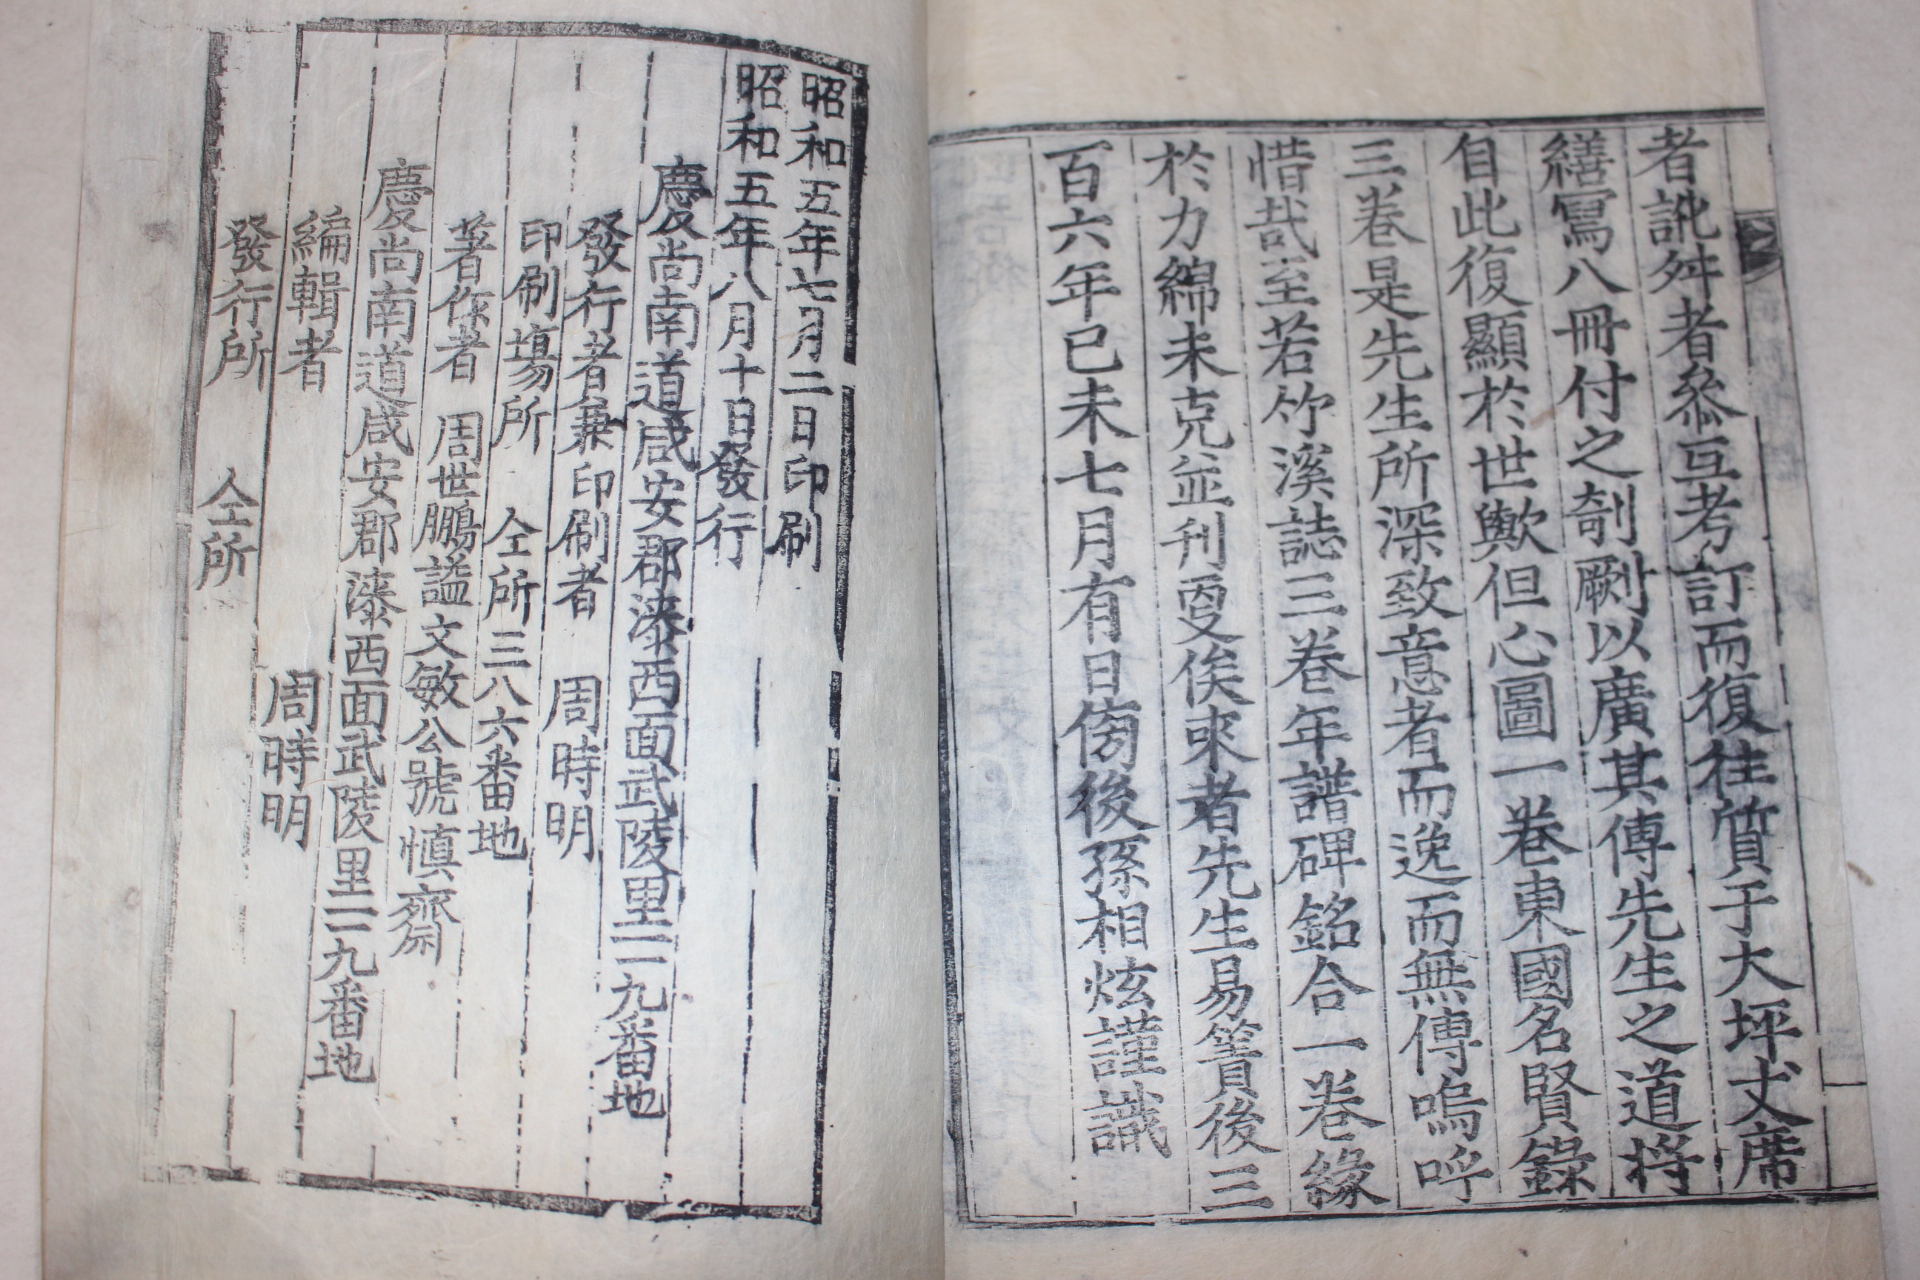 者訛舛者叅互考訂而復往質于大坪丈席
繕寫八冊付之剞劂以廣其傳先生之道將
自此復顯於世歟但心圖一卷東國名賢錄
三卷是先生所深致意者而逸而無傳嗚呼
惜哉至若竹溪誌三卷年譜碑銘合一卷緣
於力綿未克並刊更俟來者先生易簀後三
百六年已未七月有日傍後孫相炫謹識
昭和五年七月二日印刷
昭和五年八月十日發行
慶尚南道咸安郡漆西面武陵里二一九番地
發行者兼印刷者 周時明
印刷場所 仝所三八六番地
著作者 周世鵬謚文敏公號慎齋
慶尚南道咸安郡漆西面武陵里二一九番地
編輯者 周時明
發行所 仝所